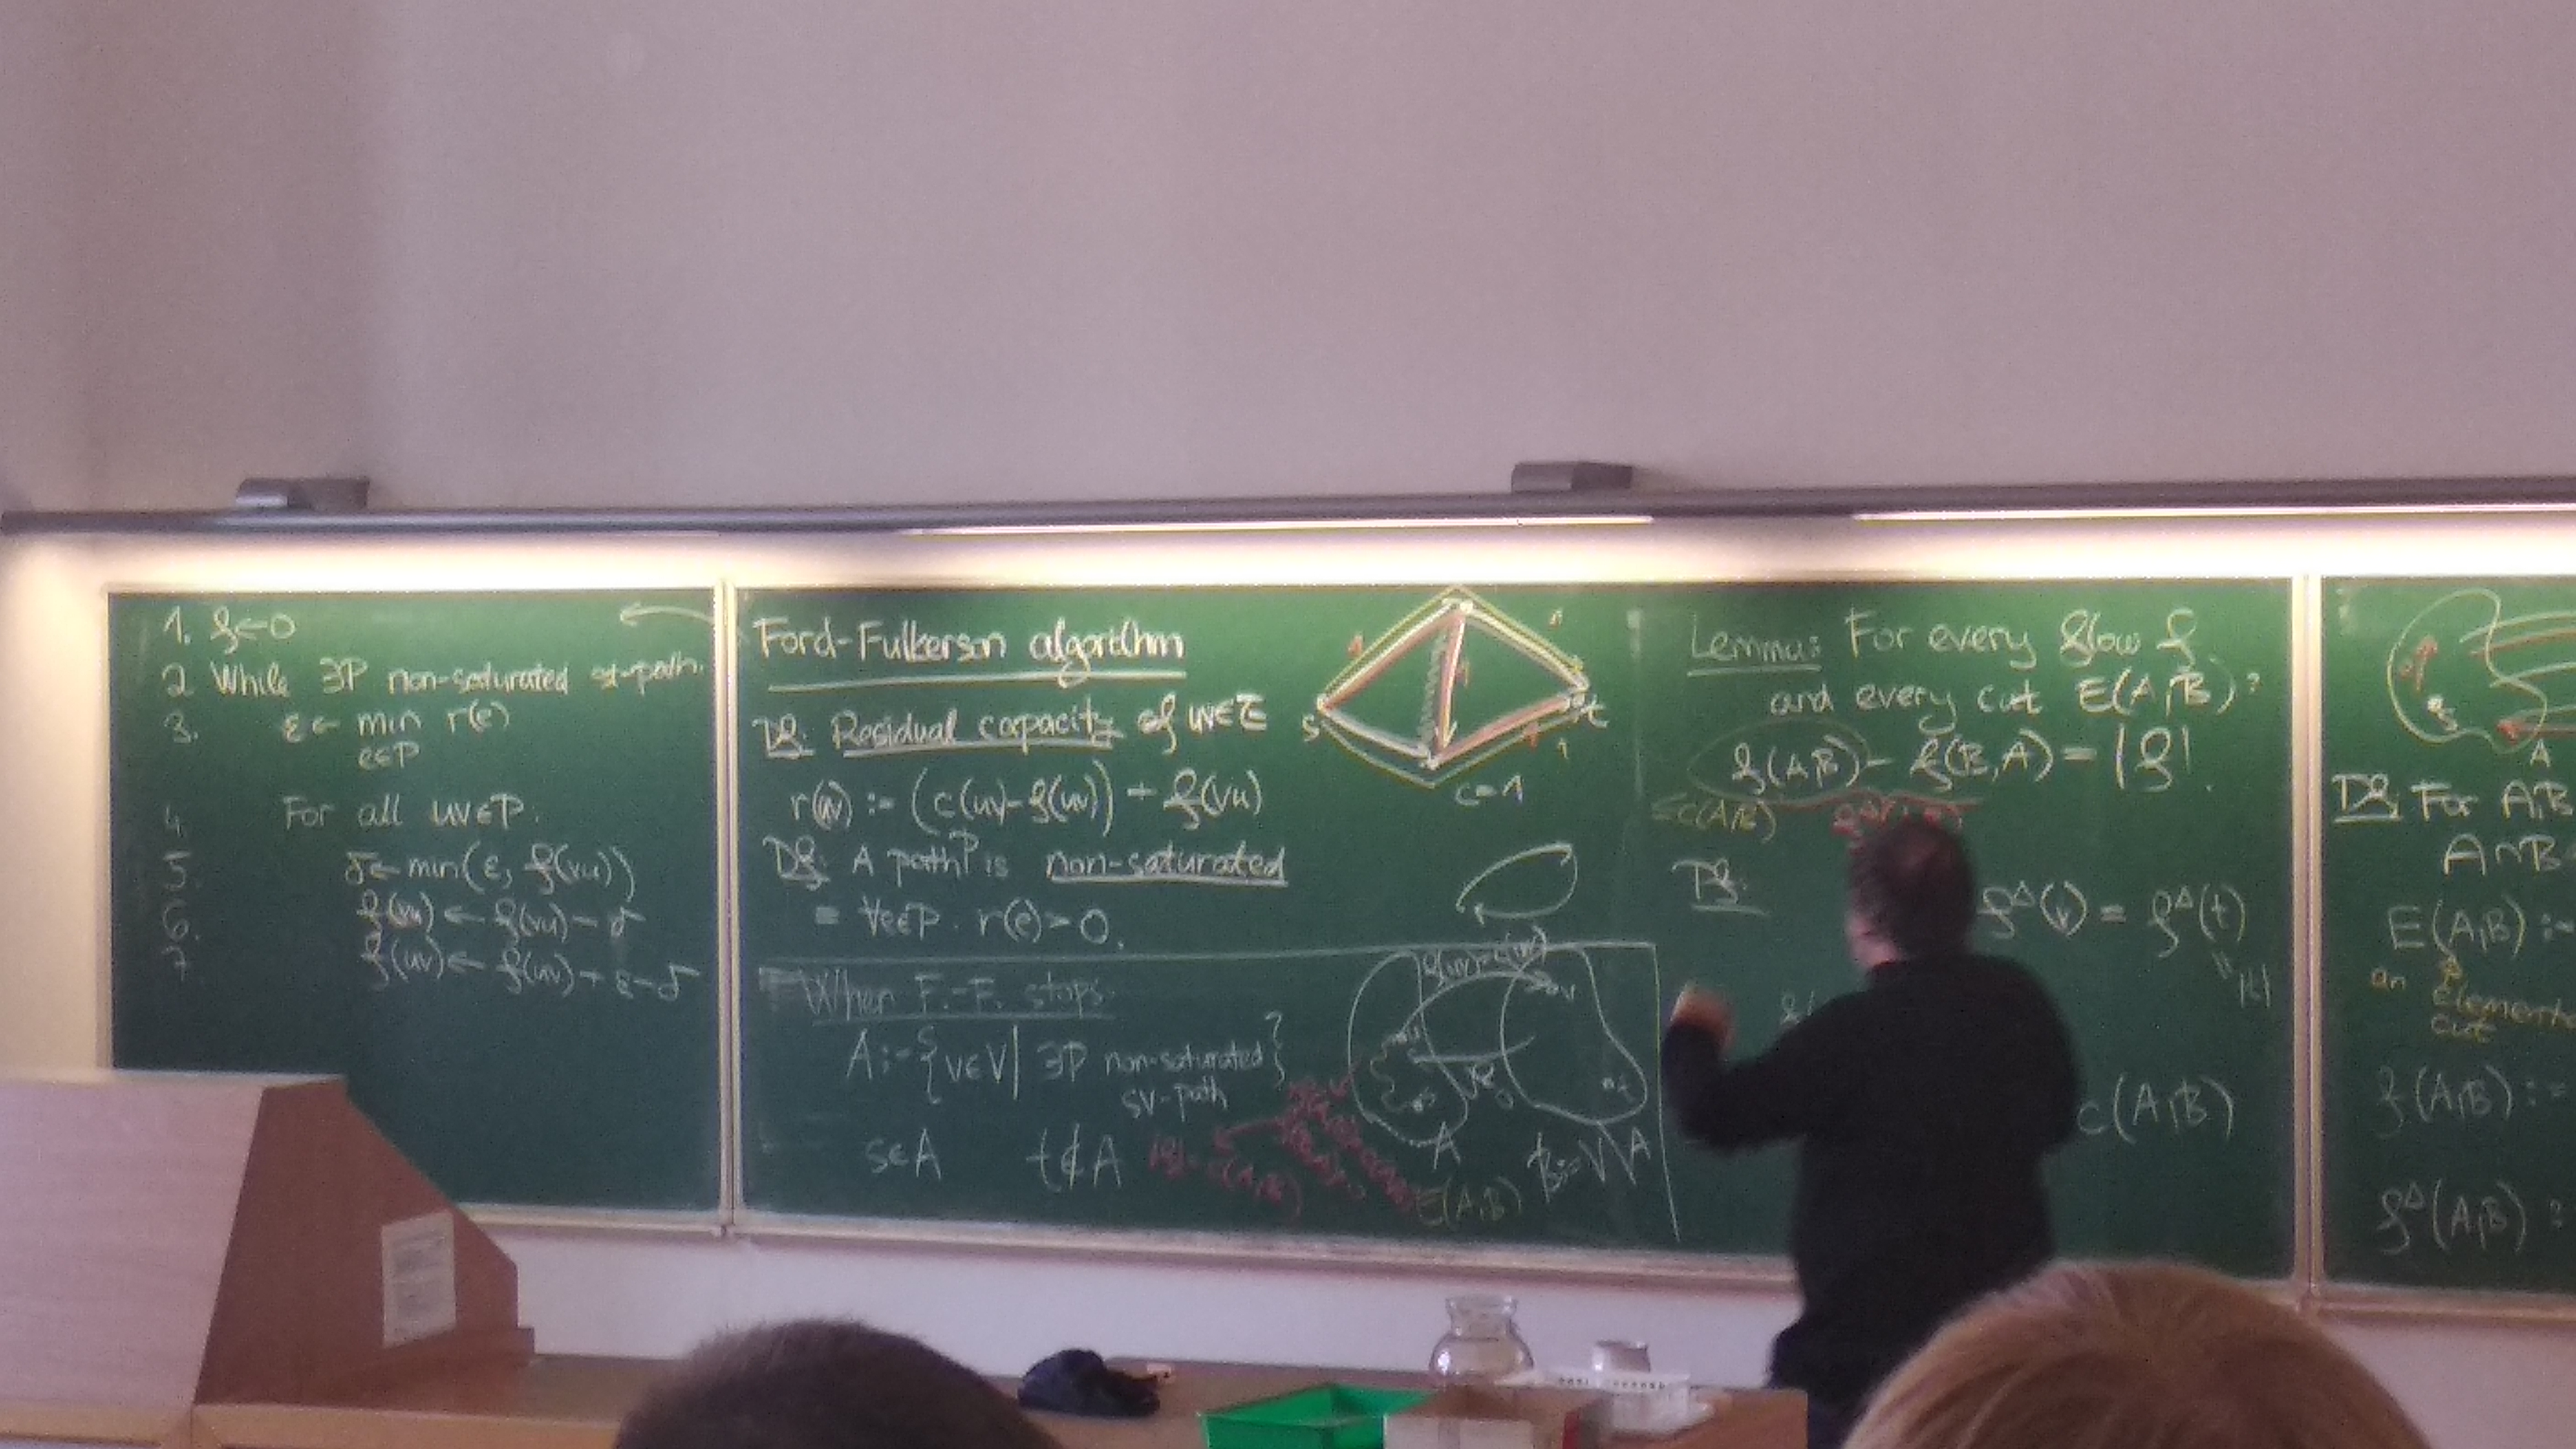 1. f ← 0
2 While ∃P non-saturated st-path.
3. ε ← min r(e)
e∈P
4. For all uv∈P:
5. δ ← min(ε, f(vu))
6. f(vu) ← f(vu) - δ
7 f(uv) ← f(uv) + ε - δ
Ford-Fulkerson algorithm
Df: Residual capacity of uv∈E
r(uv) := (c(uv) - f(uv)) + f(vu)
Df: A path P is non-saturated
≡ ∀e∈P: r(e) > 0.
When F.-F. stops:
A := {v∈V | ∃P non-saturated
sv-path}
s∈A t∉A
|f| = c(A,B)
s
t
1
1
1
1
1
c=1
v
s
t
A
B := V\A
E(A,B)
Lemma: For every flow f
and every cut E(A,B):
f(A,B) - f(B,A) = |f|.
≤ c(A,B)
Pf:
f^Δ(v) = f^Δ(t)
|f|
c(A,B)
s
A
Df: For A,B
A∩B
E(A,B) :=
an element
cut
f(A,B) :=
f^Δ(A,B) :